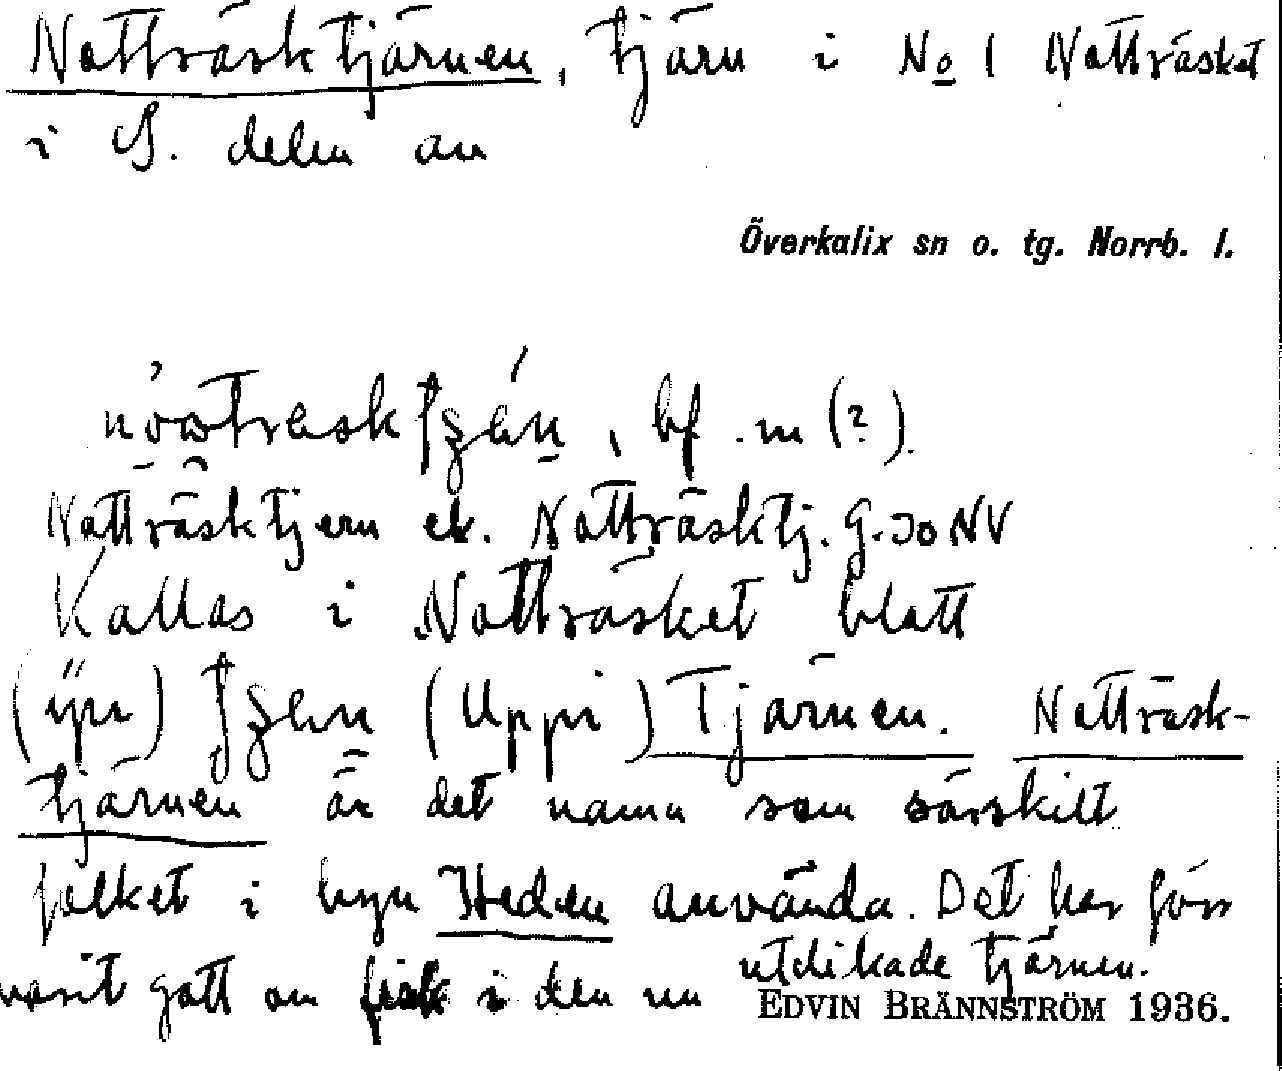 Nattträsktjärnen, tjärn i No 1 Nattträsket
i S. delen av
Överkalix sn o. tg. Norrb. l.
bf. m (?).
Nattträsktjern ek. Nattträsktj. G. Jo NV
Kallas i Nattträsket blott
(Uppi) Tjärnen. Nattträsk-
tjärnen är det namn som särskilt
folket i byn Heden använda. Det har förr
varit gott om fisk i den nu utdikade tjärnen.
EDVIN BRÄNNSTRÖM 1936.